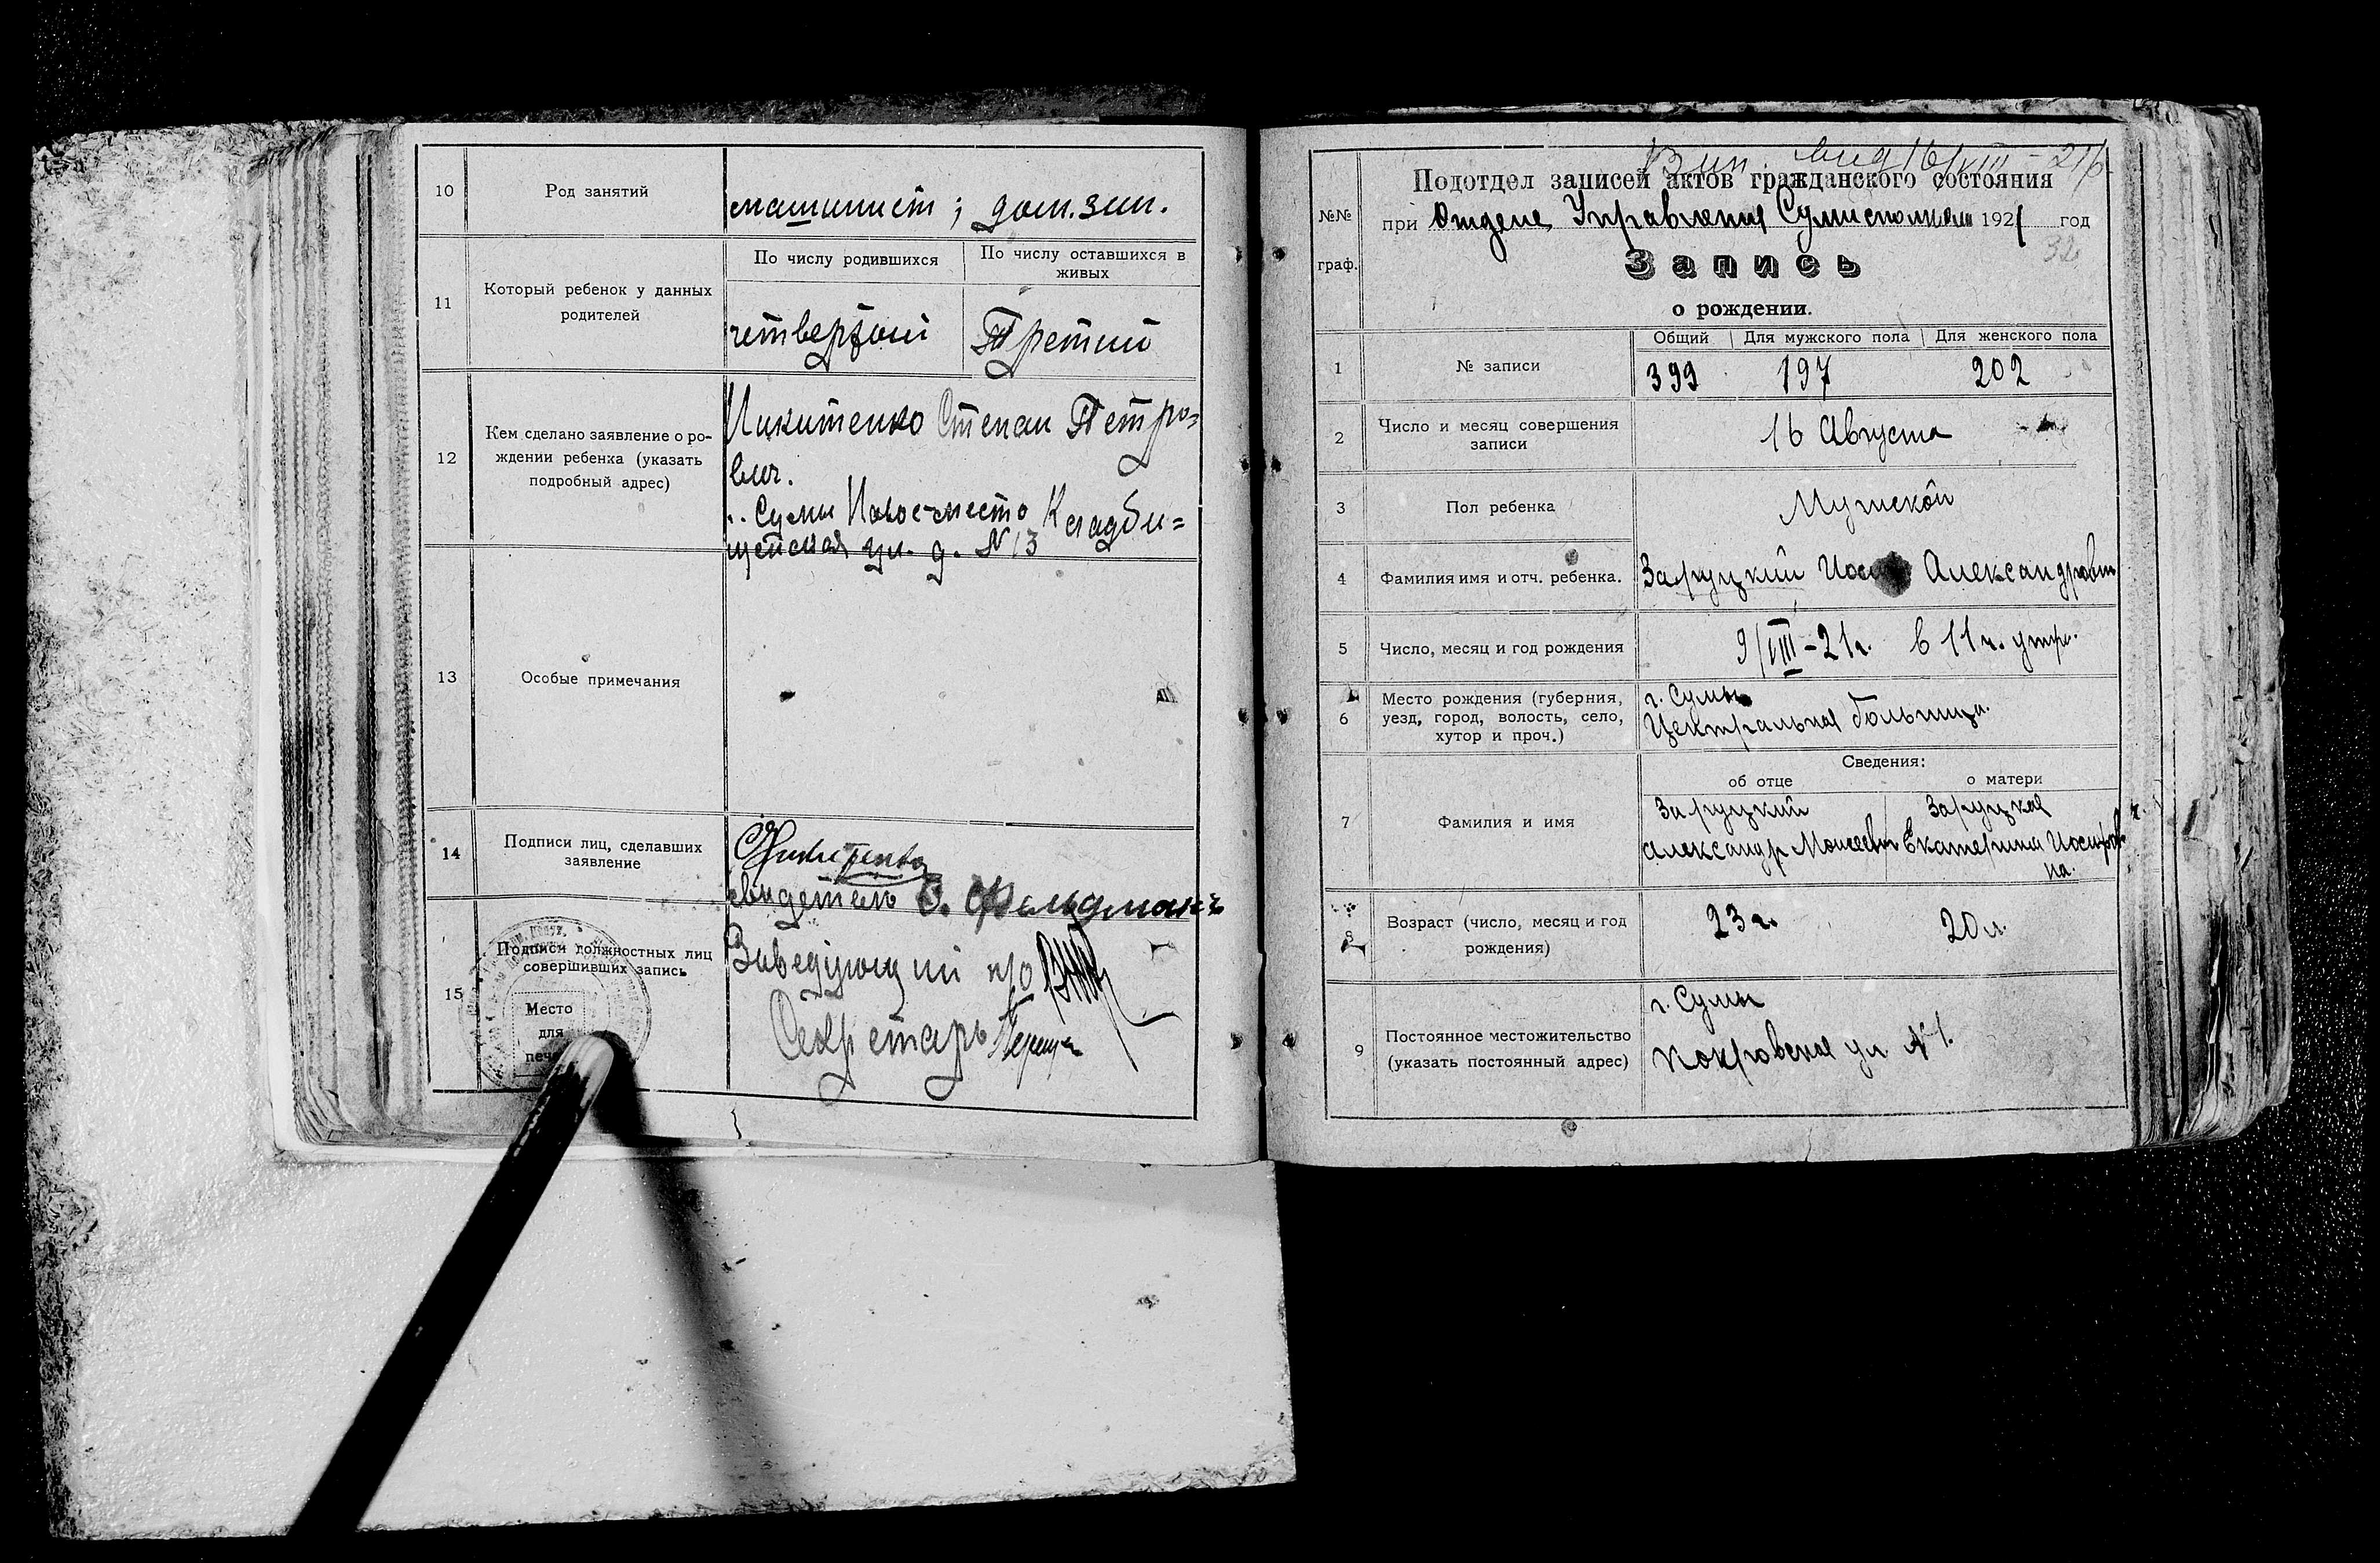 10
Род занятий
машинист; дом.зан.
11
Который ребенок у данных
родителей
По числу родившихся
По числу оставшихся в
живых
четвертый
Третий
12
Кем сделано заявление о ро-
ждении ребенка (указать
подробный адрес)
Никитенко Степан Петро=
вич.
г. Сумы Новое-место Кладби=
щенская ул. д. № 13
13
Особые примечания
14
Подписи лиц, сделавших
заявление
Никитенко
свидетель Фельдманъ
15
Подписи должностных лиц
совершивших запись
Место
для
печ
Заведующий п/о
Секретарь
№№
граф.
Вып. 16/VIII-21
Подотдел записей актов гражданского состояния
при Отделе Управления Сумисполкома 1921 год
32
Запись
о рождении.
1
№ записи
Общий
Для мужского пола
Для женского пола
399
197
202
2
Число и месяц совершения
записи
16 Августа
3
Пол ребенка
Мужской
4
Фамилия имя и отч. ребенка.
Заруцкий Иосиф Александрович
5
Число, месяц и год рождения
9/VIII-21г. в 11 ч. утра.
6
Место рождения (губерния,
уезд, город, волость, село,
хутор и проч.)
г. Сумы
Центральная больница.
7
Фамилия и имя
Сведения:
об отце
о матери
Заруцкий
Александр Моисеевич
Заруцкая
Екатерина Иосифов-
на.
8
Возраст (число, месяц и год
рождения)
23 г.
20 л.
9
Постоянное местожительство
(указать постоянный адрес)
г. Сумы
Покровская ул. №1.